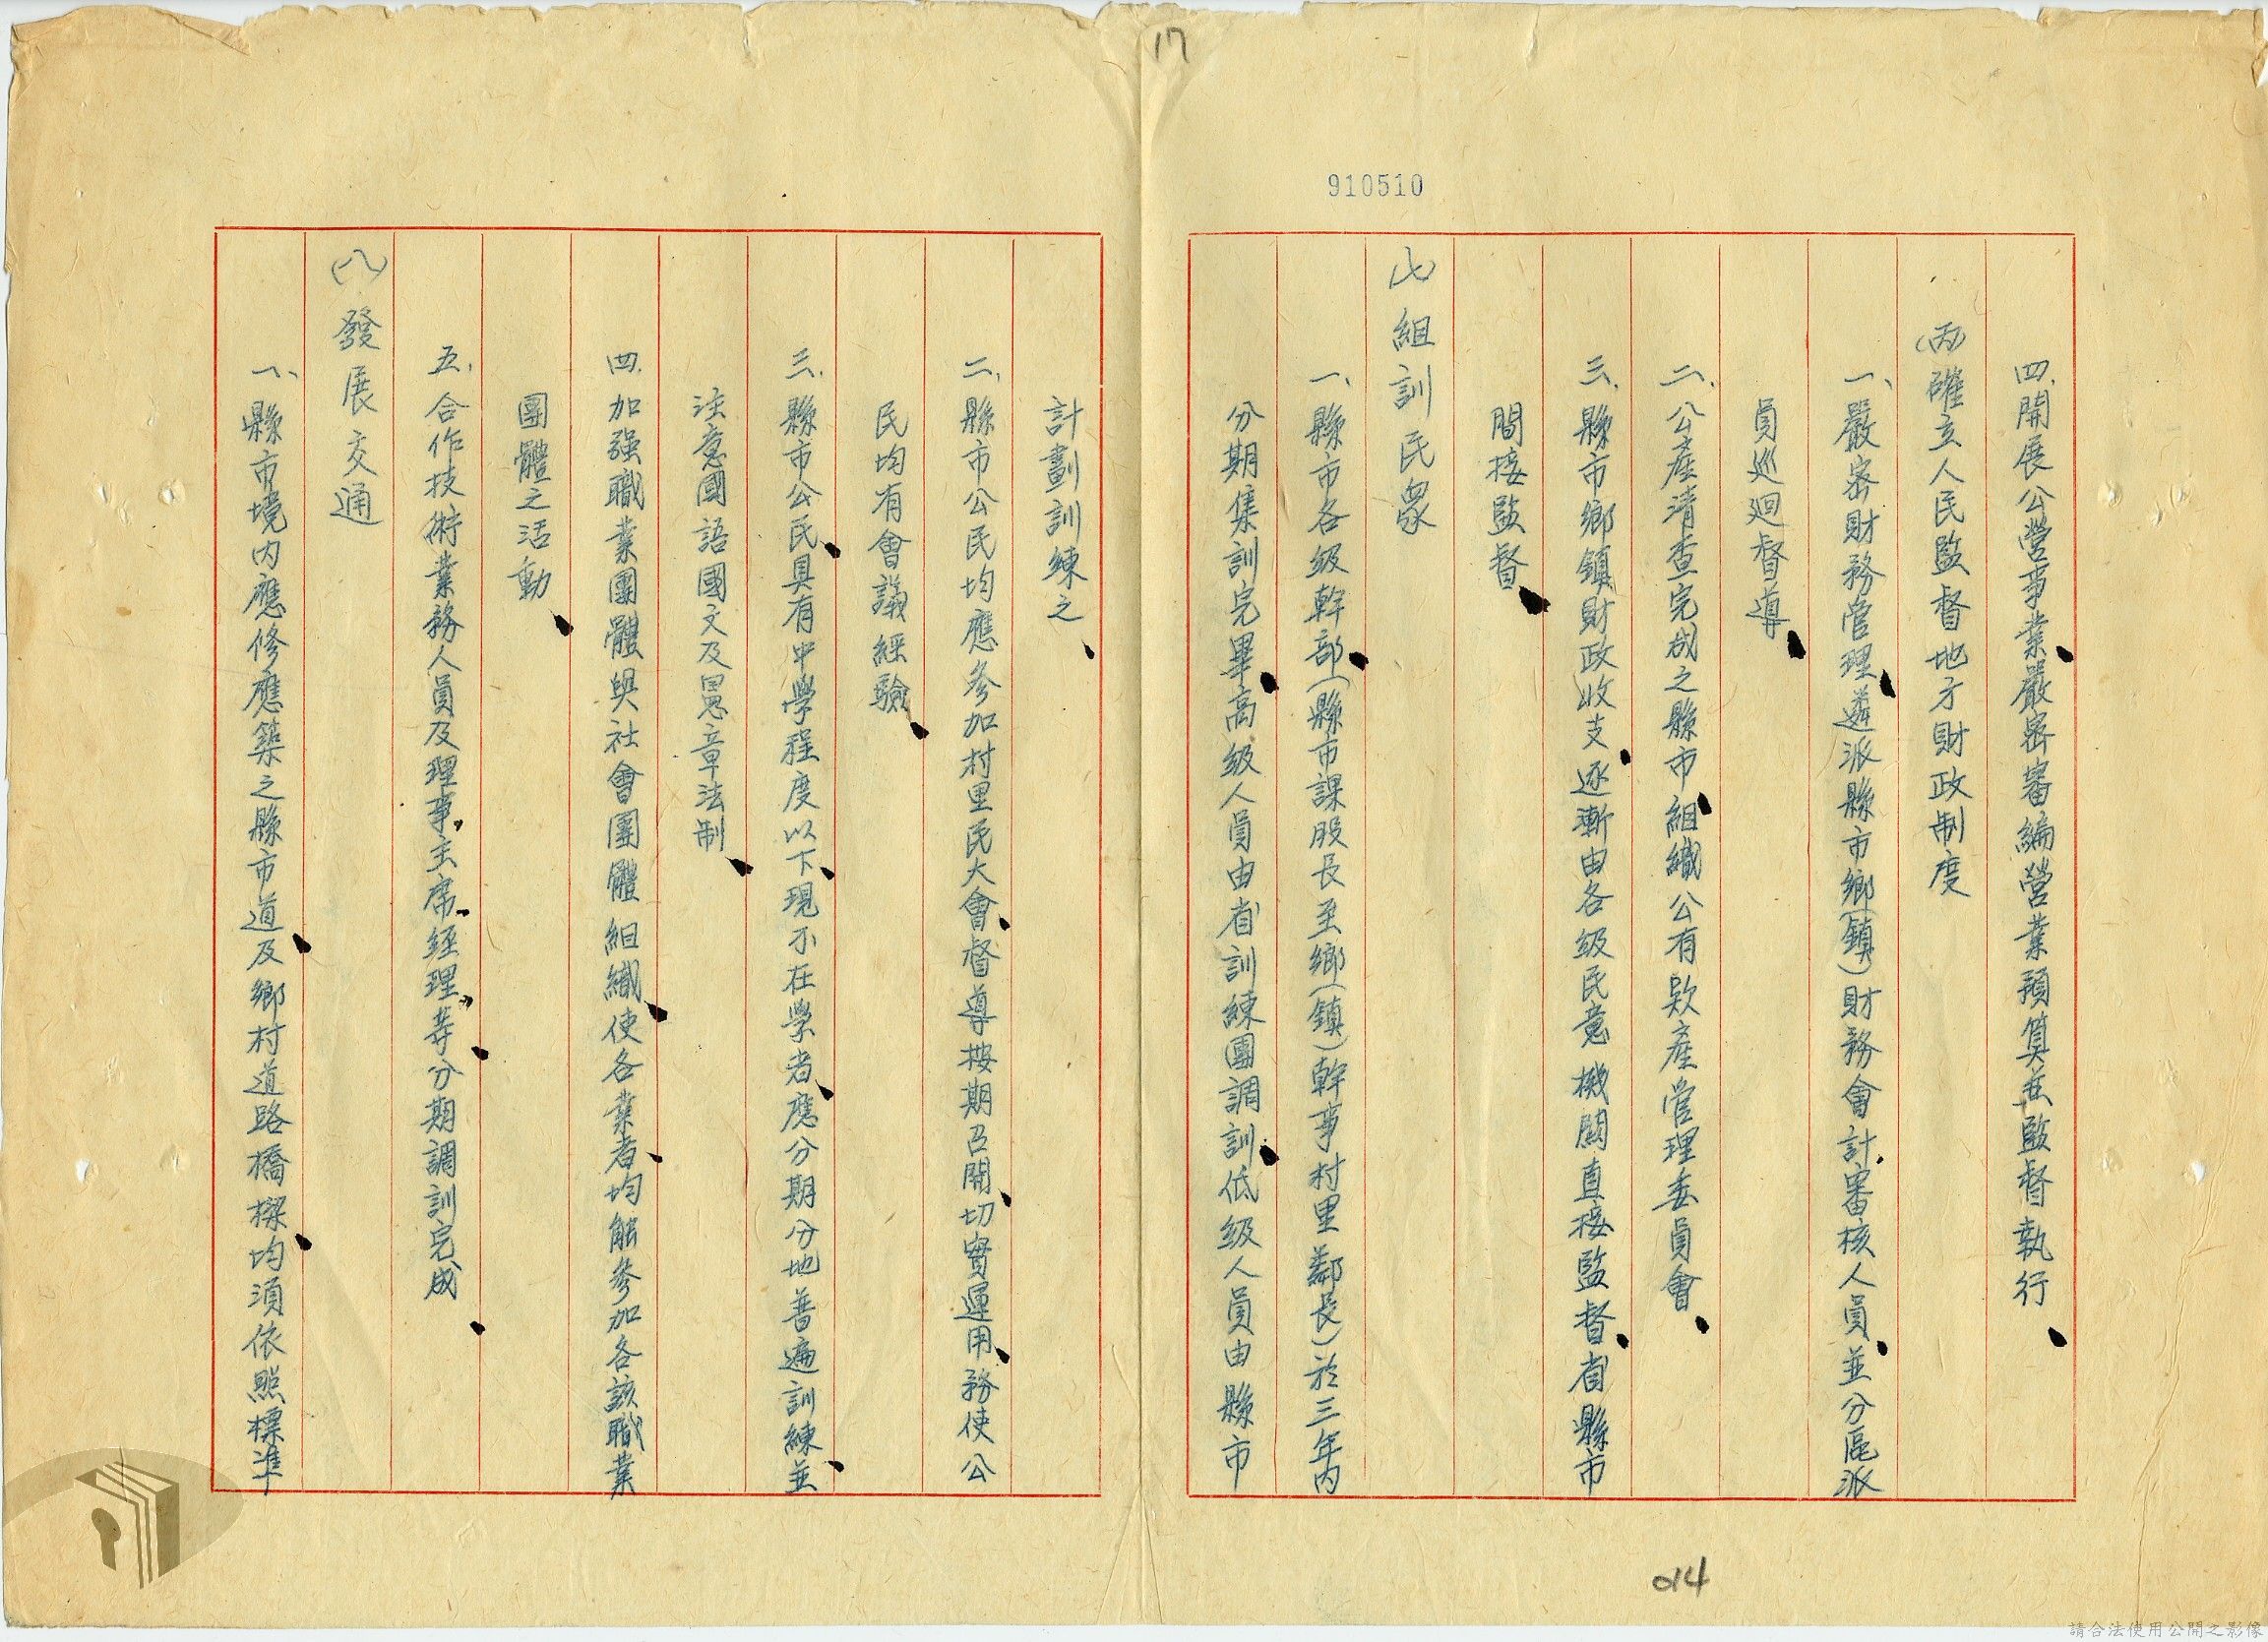 17
910510
四、開展公營事業、嚴密審編營業預算並監督執行、
(丙)確立人民監督地方財政制度
一、嚴密財務管理、遴派縣市鄉(鎮)財務會計、審核人員、並分區派
員巡迴督導、
二、公產清查完成之縣市、組織公有款產管理委員會、
三、縣市鄉鎮財政收支、逐漸由各級民意機關直接監督、省縣市
間接監督、
(七)組訓民眾
一、縣市各級幹部、(縣市課股長至鄉(鎮)幹事村里鄰長)於三年內
分期集訓完畢、高級人員由省訓練團調訓、低級人員由縣市
計劃訓練之、
二、縣市公民均應參加村里民大會、督導按期召開、切實運用、務使公
民均有會議經驗、
三、縣市公民、具有中學程度以下、現不在學者、應分期分地普遍訓練、並
注意國語國文及憲章法制、
四、加强職業團體與社會團體組織、使各業者、均能參加各該職業
團體之活動、
五、合作技術業務人員及理事、主席、經理、等、分期調訓完成、
(八)發展交通
一、縣市境內應修應築之縣市道、及鄉村道路橋樑、均須依照標準
014
請合法使用公開之影像